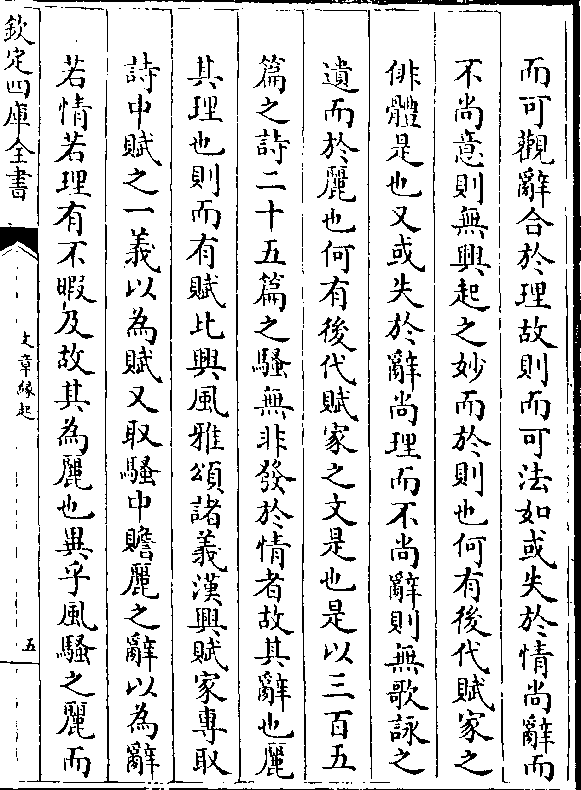 而可觀辭合於理故則而可法如或失於情尚辭而
不尚意則無興起之妙而於則也何有後代賦家之
俳體是也又或失於辭尚理而不尚辭則無歌詠之
遺而於麗也何有後代賦家之文是也是以三百五
篇之詩二十五篇之騷無非發於情者故其辭也麗
其理也則而有賦比興風雅頌諸義漢興賦家專取
詩中賦之一義以為賦又取騷中贍麗之辭以為辭
若情若理有不暇及故其為麗也異乎風騷之麗而
欽定四庫全書
文章緣起
五